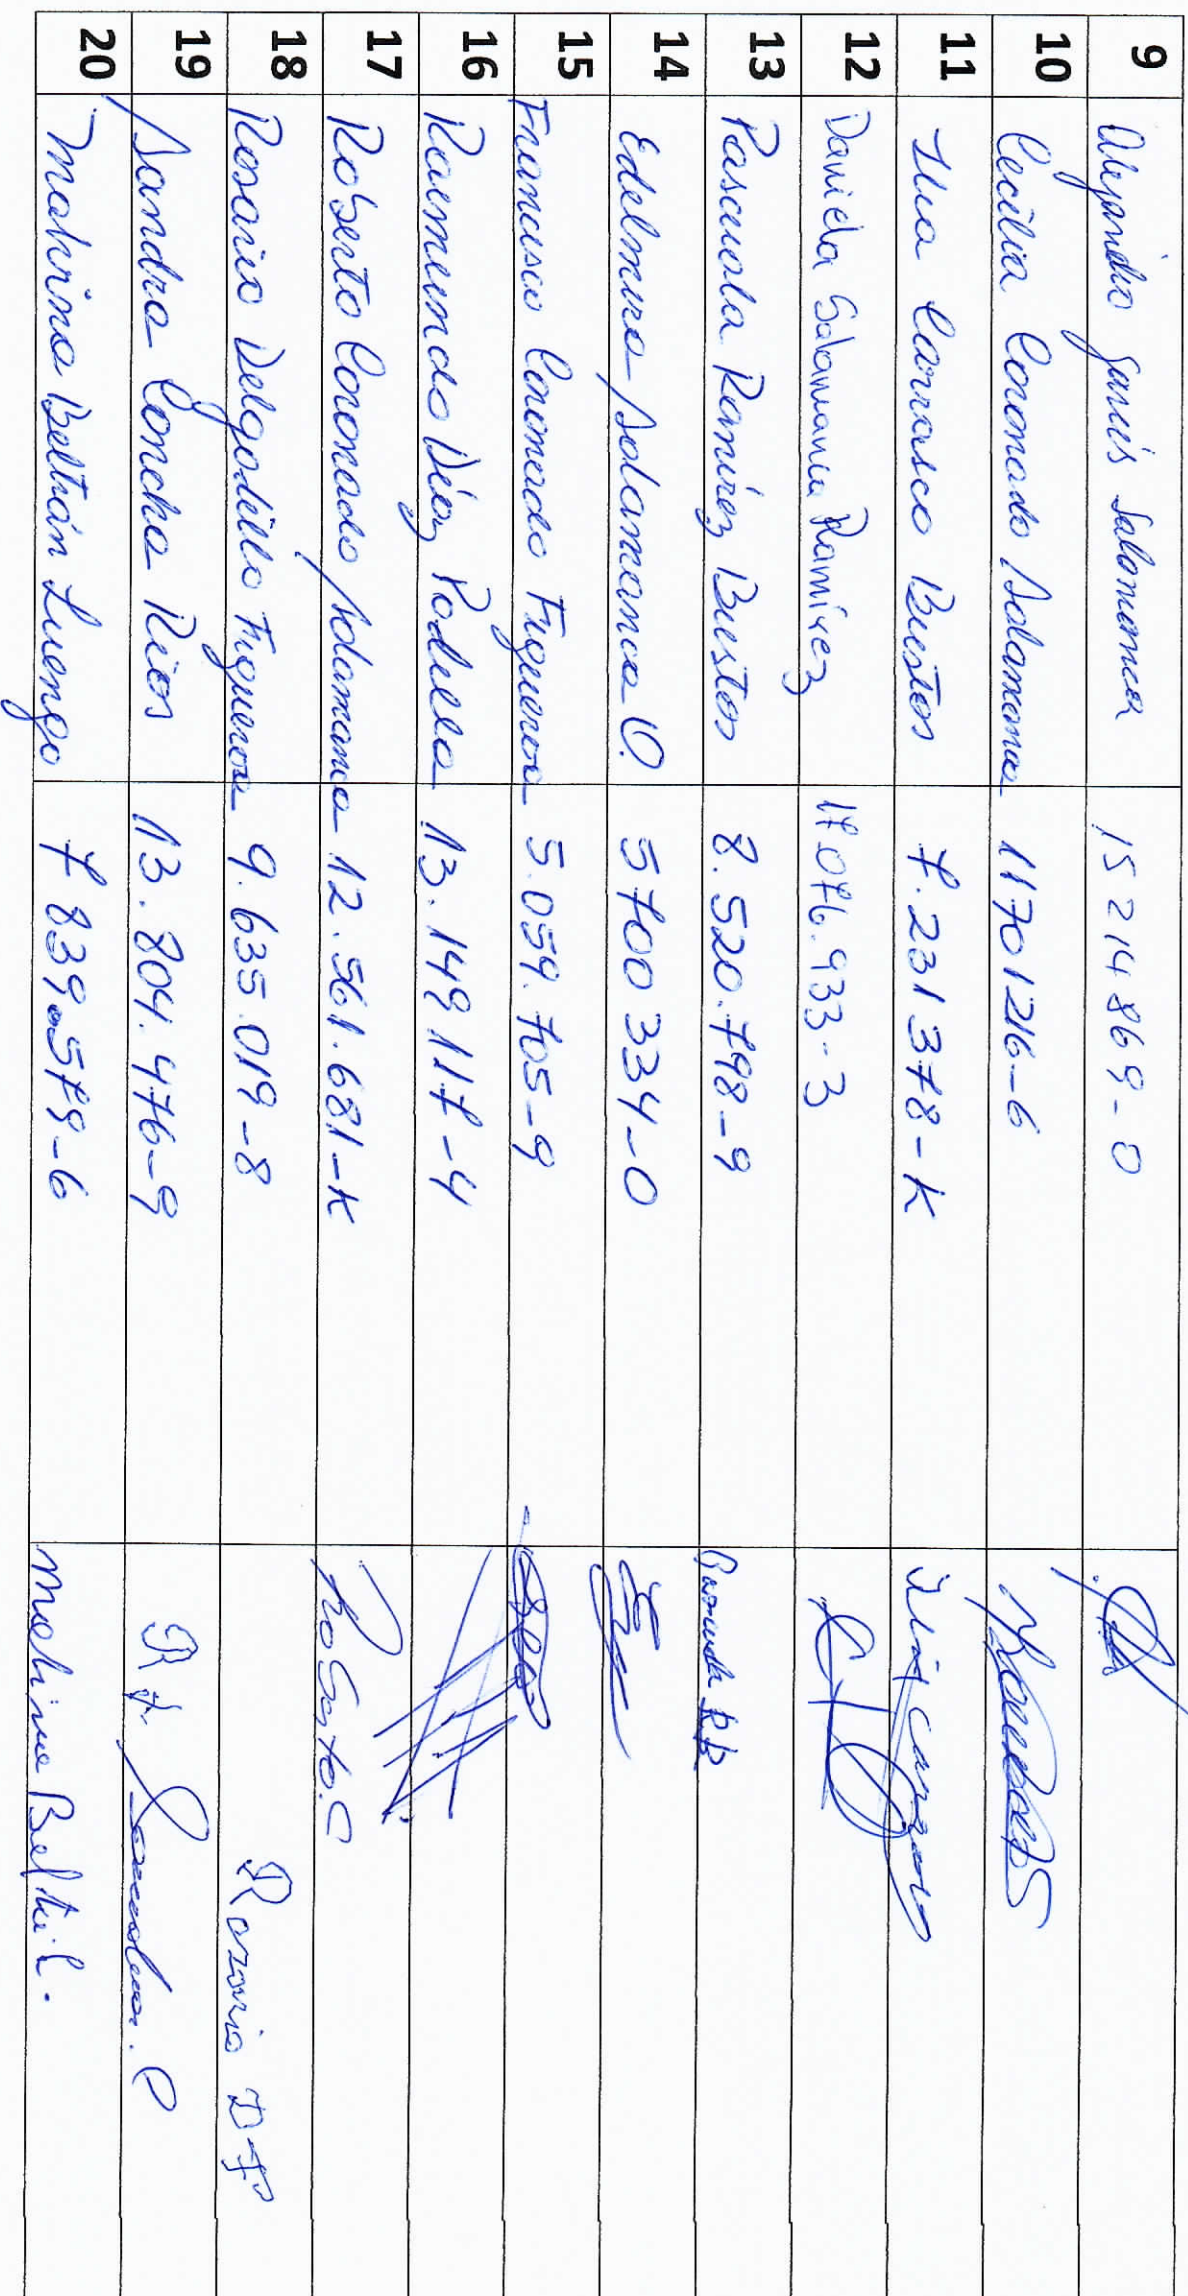 9 Alejandro Garcés Salamanca 15 214 869-0
10 Cecilia Coronado Salamanca 11701216-6
11 Ilia Carrasco Bustos 7.231378-K Ilia Carrasco
12 Daniela Salamanca Ramirez 17.076.933-3
13 Pascuala Ramírez Bustos 8.520.798-9 R B
14 Edelmira Salamanca O. 5700334-0
15 Francisco Coronado Figueroa 5.059.705-9
16 Raemundo Díaz Padilla 13.149117-4
17 Roberto Coronado Salamanca 12.561.681-K Roberto.C
18 Rosario Delgadillo Figueroa 9.635.019-8 Rozario D F
19 Sandra Concha Rios 13.804.476-9
20 Mahirina Beltrán Luengo 7839.579-6